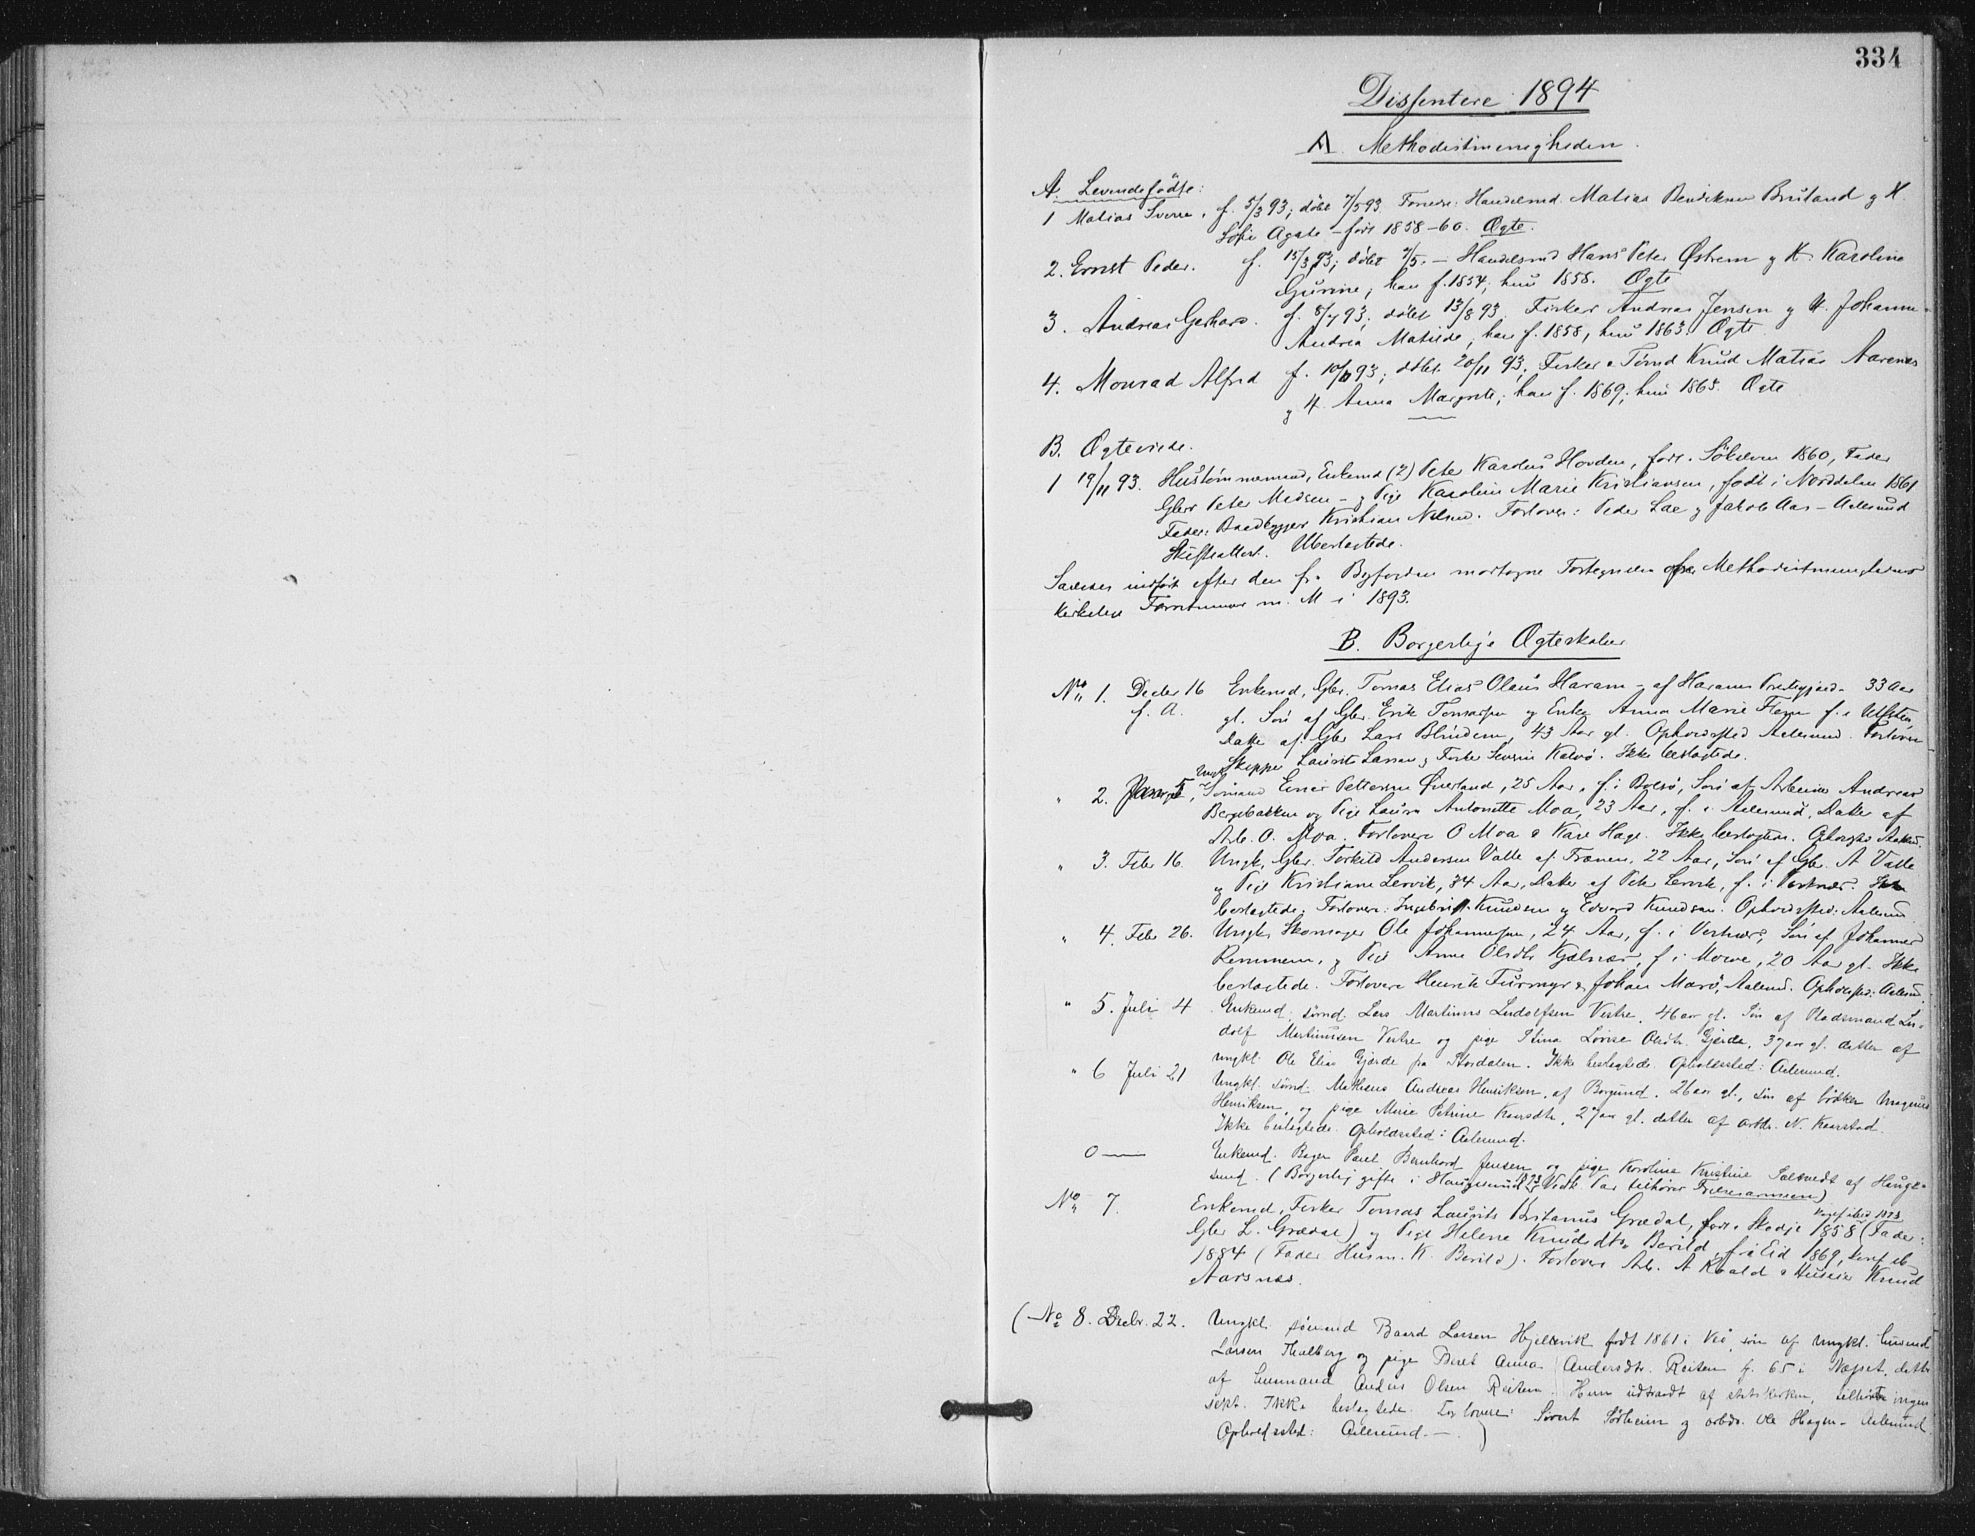 334
Dissentere 1894
A. Methodistmenigheden.
A. Levendefödte:
1 Matias Sverre, f. 5/3 93; döbt 7/5 93. Forældr. Handelsmd. Matias Bendiksen Bruland og H.
Sofie Agate - födt 1858-60. Ægte.
2. Ernst Peder. f. 15/3 93; döbt 7/5. - Handelsmd Hans Peter Østrem og H. Karoline
Gurine; han f. 1854; hun 1858. Ægte
3. Andreas Gerhard. f. 8/7 93; döbt 13/8 93. Fisker Andreas Jensen og H. Johanne
Andrea Matilde; han f. 1858, hun 1863. Ægte
4. Monrad Alfred f. 10/10 93; döbt 20/11 93; Fisker Tömd Knud Matias Aarenes
og H. Anna Margrete; han f. 1869; hun 1865. Ægte
B. Ægteviede.
1 19/11 93. Hustömmermand, Enkemd (2) Peter Kardeus Hovden, födt 1860, Fader
Gbr Peter Madsen - og Pige Karoline Marie Kristiansen, födt i Norddalen 1861
Fader: Baadbygger Kristian Nilsen. Forlover: Peder Sæ og Jakob Aas - Aalesund
Skifteattest. Ubeslægtede.
Saaledes indfört efter den fra Byfogden modtagne Fortegnelse over Methodistmenighedens
kirkelige Forretninger m. M i 1893.
B. Borgerlige Ægteskaber
No. 1. Decbr 16 f. A. Enkemd, Gbr. Tomas Elias Olaus Haram - af Harams Prestegjæld - 33 Aar
gl. Sön af Gbr. Erik Tomassen og Enke Anna Marie Flem f. i Ulsten,
Datter af Gbr Lars Blindem, 43 Aar gl. Opholdssted Aalesund. Forlovere
Skipper Laurits Larsen og Severin Kalvö. Ikke beslægtede.
" 2. Januar 5, Ungk. Sömand Einar Pettersen Överland, 25 Aar, f. i Bolsö, Sön af Arbeider Andreas
Bergebakken og Pige Laura Antonette Moa, 23 Aar, f. i Aalesund, Datter af
Arb. O. Moa. Forlovere O Moa & Kare Hage. Ikke beslægtede. Opholdssted Aalesd.
" 3. Febr 16. Ungk, Gbr. Torkild Andersen Valle af Frænen. 22 Aar, Sön af Gbr. A Valle
og Pige Kristiane Lervik, 34 Aar, Datter af Peter Lervik, f. i Vestnæs. Ikke
beslægtede. Forlovere: Ingebrigt Knudsen og Edvard Knudsen. Opholdssted: Aalesund
" 4. Febr 26. Ungk. Skomager Ole Johannesen, 24 Aar, f. i Vestnæs, Sön af Johannes
Remmem, og Pige Anne Olsdtr Kjelsnæs, f i 20 Aar gl. Ikke
beslægtede. Forlovere Henrik Furmyr & Johan Marö, Aalesund. Opholdssted: Aalesund.
" 5. Juli 4 Enkemd, sömd. Lars Martinus Ludolfsen Vestre, 46 aar gl. Sön af Pladsmand Lu-
dolf Martinusen Vestre og pige Stina Lovise Olsdtr. Gjerde, 37 aar gl. datter af
ungkl. Ole Elias Gjærde fra Stordalen. Ikke beslægtede. Opholdssted: Aalesund.
" 6 Juli 21 Ungkl. sömd. Mathæus Andreas Henriksen, af Borgund. 26 aar gl., sön af bödker Magnus
Henriksen, og pige Marie Petrine Knarsdtr, 27 aar gl. datter af arbdr. N. Knarstad.
Ikke beslægtede. Opholdssted: Aalesund.
0 — Enkemd. Bager Paul Bernhard Jensen og pige Karoline Kristine Saltvedt af Hauge-
sund. (Borgerlig gifte i Haugesund 1893. Vedk Par tilhörer Frelsesarmeen)
No. 7. Enkemd, Fisker Tomas Laurits Britanus Grædal, föd i Skodje 1858 (Fader: Konf. ibid 1873
Gbr L. Grædal) og Pige Helene Knudsdtr Berild, f. i Eid 1869, konf. ib
1884 (Fader Husm. K. Berild). Forlovere Arb. A Kvald & Huseier Knud
Aarsnes.
(No 8. Decbr. 22. Ungkl. sömand Baard Larsen Hjellevik födt 1861 i Veö, sön af ungkl. husmd
Larsen Thalberg og pige Beret Anna Andersdtr. Reiten f. 65 i Nesset, datter
af husmand Anders Olsen Reiten. Hun udtraadt af statskirken, tilhörte ingen
sekt. Ikke beslægtede. Forlovere: Sivert Sörheim og arbdr. Ole Hagen - Aalesund.
Opholdssted: Aalesund. —)